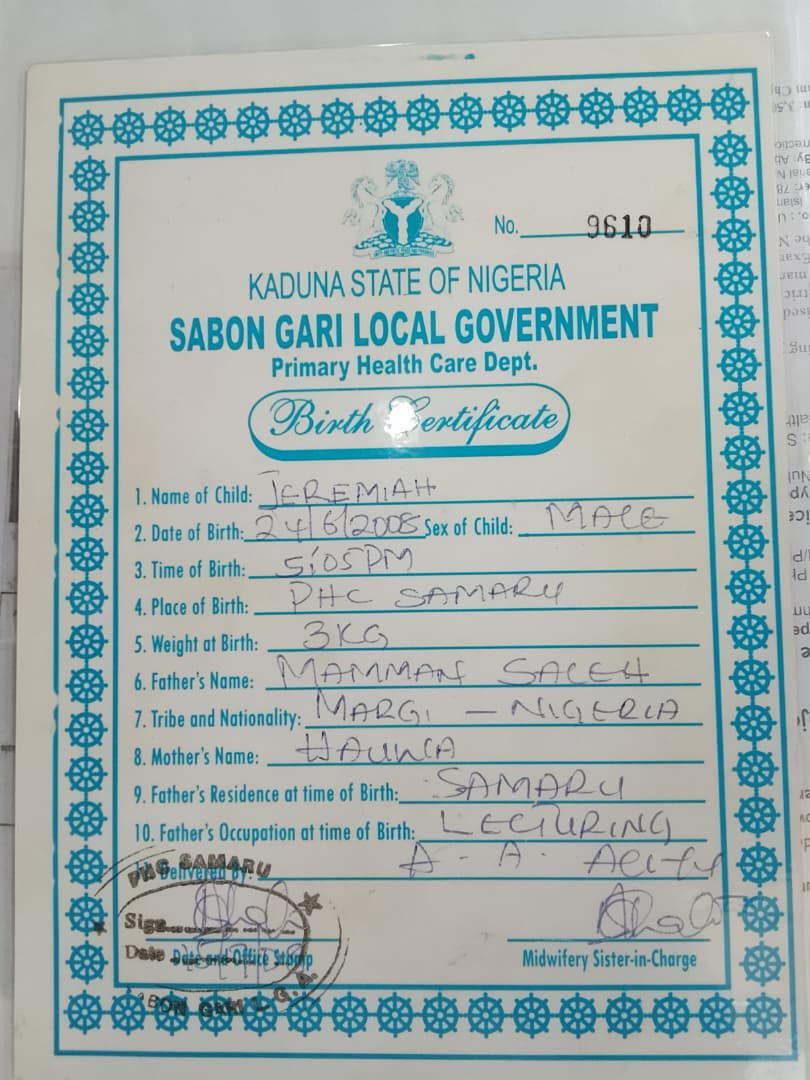 No. 9610
KADUNA STATE OF NIGERIA
SABON GARI LOCAL GOVERNMENT
Primary Health Care Dept.
Birth Certificate
1. Name of Child: JEREMIAH
2. Date of Birth: 24/6/2008 Sex of Child: MALE
3. Time of Birth: 5:05PM
4. Place of Birth: PHC SAMARU
5. Weight at Birth: 3KG
6. Father's Name: MAMMAN SALEH
7. Tribe and Nationality: MARGI - NIGERIA
8. Mother's Name: HAUWA
9. Father's Residence at time of Birth: SAMARU
10. Father's Occupation at time of Birth: LECTURING
Delivered By: A. A.
PHC SAMARU
Sign
Date
Date and Office Stamp
Midwifery Sister-in-Charge
SABON GARI L.G.A.